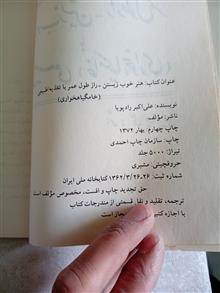 عنوان کتاب: هنر خوب زیستن - راز طول عمر با تغذیه طبیعی
(خامگیاهخواری)
نویسنده: علی‌اکبر رادپویا
ناشر: مؤلف
چاپ چهارم: بهار ۱۳۷۲
چاپ: سازمان چاپ احمدی
تیراژ: ۵۰۰۰ جلد
حروفچینی: مشیری
شماره ثبت: ۱۳۶۲/۳/۲۶-۲۶ کتابخانه ملی ایران
حق تجدید چاپ و افست، مخصوص مؤلف است
ترجمه، تقلید و نقل قسمتی از مندرجات کتاب
با اجازه کتبی مجاز است